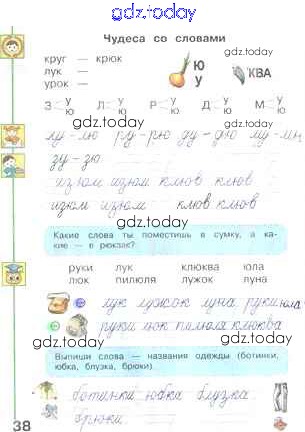 gdz.today
Чудеса со словами
gdz.today
круг — крюк
лук —
урок —
Ю
У
КВА
З У Ю Л У Ю Р У Ю Д У Ю М У Ю
gdz.today
лу - лю ру - рю ду - дю му - мю
зу - зю
gdz.today
изюм изюм клюв клюв
изюм изюм клюв клюв
gdz.today
Какие слова ты поместишь в сумку, а ка-
кие — в рюкзак?
gdz.today
руки лук клюква юла
люк пилюля лужок луна
gdz.today
лук лужок луна руки юла
руки люк пилюля клюква
gdz.today
Выпиши слова — названия одежды (ботинки,
юбка, блузка, брюки).
gdz.today
ботинки юбка блузка
брюки
38
gdz.today